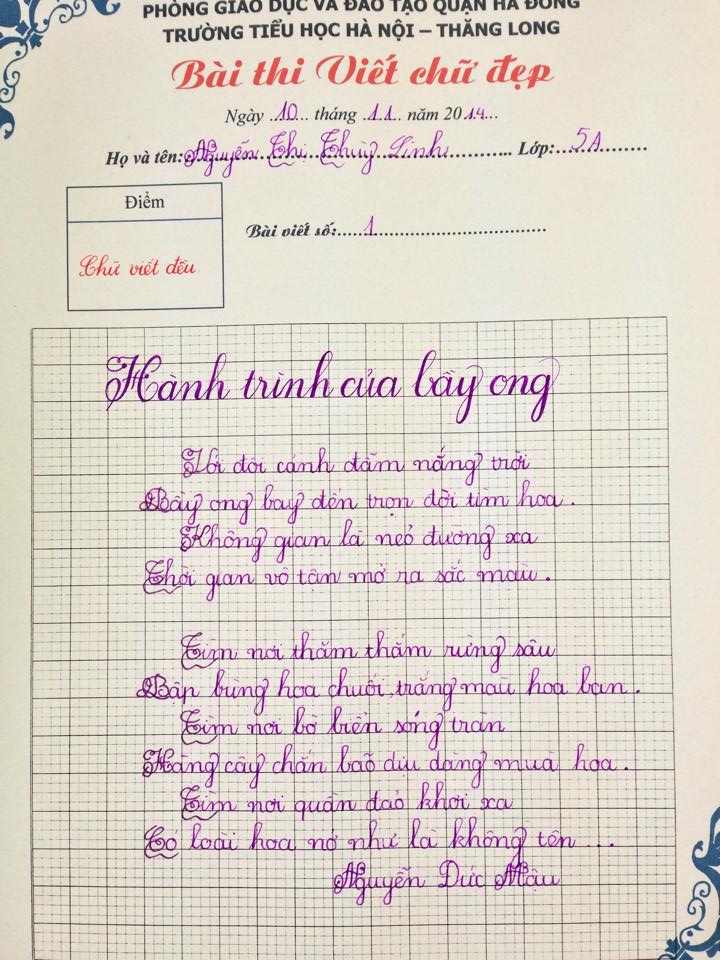 PHÒNG GIÁO DỤC VÀ ĐÀO TẠO QUẬN HÀ ĐÔNG
TRƯỜNG TIỂU HỌC HÀ NỘI – THĂNG LONG
Bài thi Viết chữ đẹp
Ngày ..10... tháng .11.. năm 2014...
Họ và tên: Nguyễn Thị Thuỳ Linh Lớp: 5A
Điểm
Chữ viết đều
Bài viết số: 1
Hành trình của bầy ong
Với đôi cánh đẫm nắng trời
Bầy ong bay đến trọn đời tìm hoa.
Không gian là nẻo đường xa
Thời gian vô tận mở ra sắc màu.
Tìm nơi thăm thẳm rừng sâu
Bập bùng hoa chuối, trắng màu hoa ban.
Tìm nơi bờ biển sóng tràn
Hàng cây chắn bão dịu dàng mùa hoa.
Tìm nơi quần đảo khơi xa
Có loài hoa nở như là không tên...
Nguyễn Đức Mậu